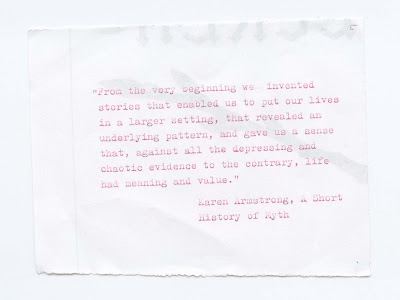 "From the very beginning we invented
stories that enabled us to put our lives
in a larger setting, that revealed an
underlying pattern, and gave us a sense
that, against all the depressing and
chaotic evidence to the contrary, life
had meaning and value."
Karen Armstrong, A Short
History of Myth